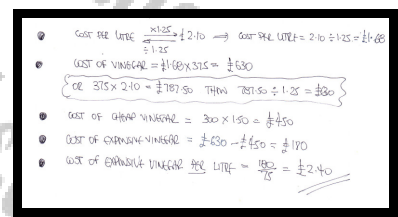 COST PER LITRE ×1.25 £2.10 ⇒ COST PER LITRE = 2.10 ÷ 1.25 = £1.68
÷ 1.25
COST OF VINEGAR = £1.68 × 375 = £630
OR 375 × 2.10 = £787.50 THEN 787.50 ÷ 1.25 = £630
COST OF CHEAP VINEGAR = 300 × 1.50 = £450
COST OF EXPENSIVE VINEGAR = £630 - £450 = £180
COST OF EXPENSIVE VINEGAR PER LITRE = 180/75 = £2.40